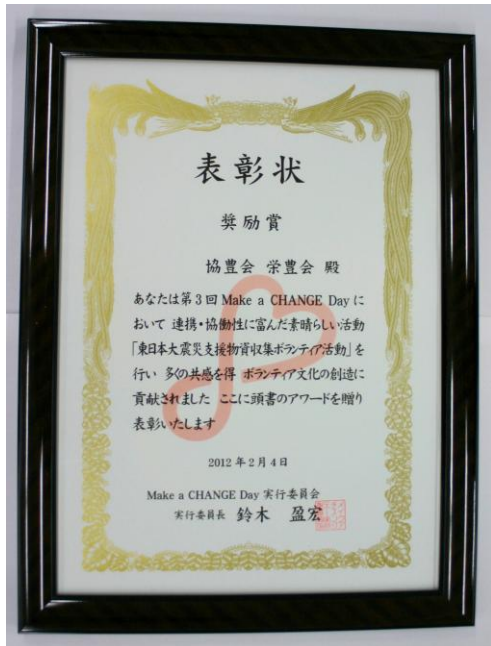 表彰状
奨励賞
協豊会 栄豊会 殿
あなたは第3回 Make a CHANGE Day に
おいて 連携・協働性に富んだ素晴らしい活動
「東日本大震災支援物資収集ボランティア活動」を
行い 多くの共感を得 ボランティア文化の創造に
貢献されました ここに頭書のアワードを贈り
表彰いたします
2012年2月4日
Make a CHANGE Day 実行委員会
実行委員長 鈴木 盈宏